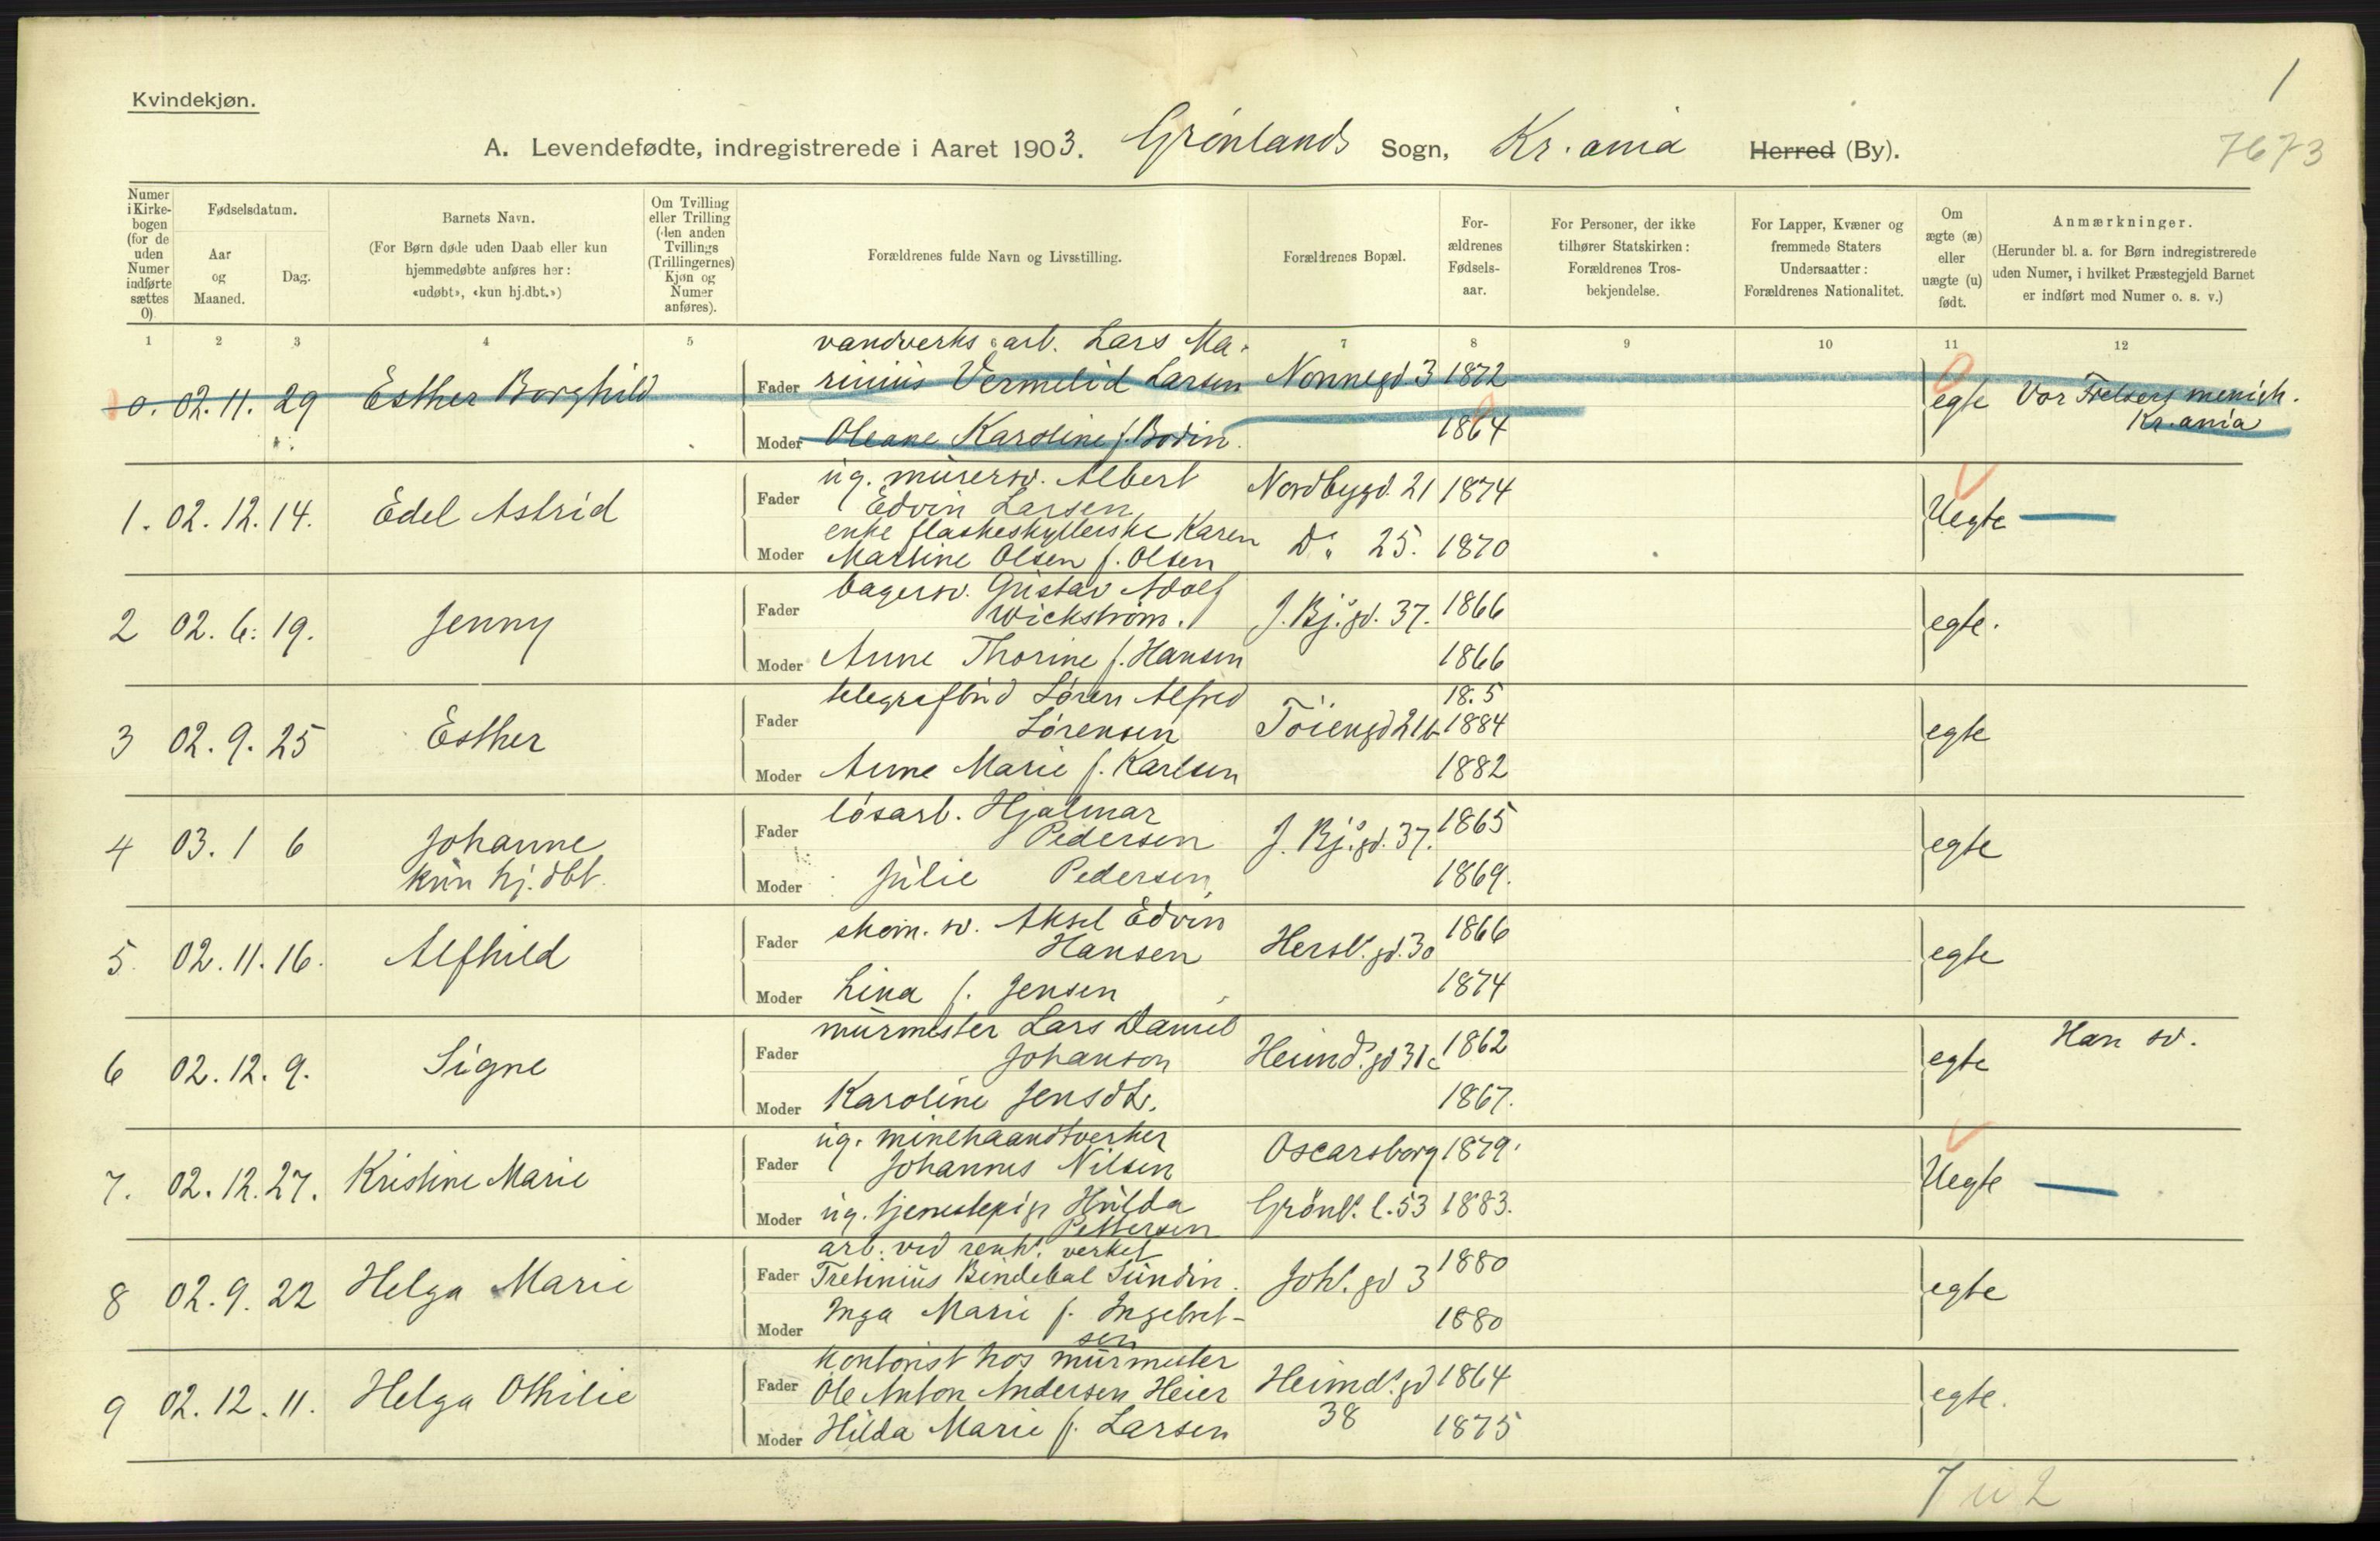 1
Kvindekjøn.
A. Levendefødte, indregistrerede i Aaret 1903. Grønlands Sogn, Kr.ania Herred (By).
7673
Numer i Kirke-bogen (for de uden Numer indførte sættes 0).
Fødselsdatum.
Aar og Maaned.
Dag.
Barnets Navn.
(For Børn døde uden Daab eller kun hjemmedøbte anføres her: «udøbt», «kun hj.dbt.»)
Om Tvilling eller Trilling (den anden Tvillings (Trillingernes) Kjøn og Numer anføres).
Forældrenes fulde Navn og Livsstilling.
Forældrenes Bopæl.
For-ældrenes Fødsels-aar.
For Personer, der ikke tilhører Statskirken: Forældrenes Tros-bekjendelse.
For Lapper, Kvæner og fremmede Staters Undersaatter: Forældrenes Nationalitet.
Om ægte (æ) eller uægte (u) født.
Anmærkninger.
(Herunder bl. a. for Børn indregistrerede uden Numer, i hvilket Præstegjeld Barnet er indført med Numer o. s. v.)
1 2 3 4 5 6 7 8 9 10 11 12
vandverks arb. Lars Ma-
0. 02.11. 29 Esther Borghild Fader rinius Vermelid Larsen Nonnegd. 3 1872 egte Vor Frelsers menigh.
Kr.ania
Moder Oleane Karoline f. Bodin. 1864
ug. murersv. Albert
1. 02.12.14. Edel Astrid Fader Edvin Larsen Nordbygd. 21 1874 Uegte —
enke flaskeskyllerske Karen
Moder Martine Olsen f. Olsen Do 25. 1870
bagersv. Gustav Adolf
2 02.6. 19. Jenny Fader Wickstrøm. J. Bj.s gd. 37. 1866 egte.
Moder Anne Thorine f. Hansen 1866
telegrafbud Søren Alfred 18.5
3 02.9. 25 Esther Fader Sørensen Tøiengd 21b 1884 egte
Moder Anne Marie f. Karlsen 1882
løsarb. Hjalmar
4 03.1 6 Johanne Fader Pedersen J. Bj.s gd. 37. 1865 egte
kun hj. dbt.
Moder Julie Pedersen, 1869.
skom. sv. Aksel Edvin
5. 02.11.16. Alfhild Fader Hansen Hersl. gd. 30 1866 egte
Moder Lina f. Jensen 1874
murmester Lars Daniel
6 02.12. 9. Signe Fader Johanson Heimd. gd 31c 1862 egte Han sv.
Moder Karoline Jensdt. 1867.
ug. minehaandtverker
7. 02.12.27. Kristine Marie Fader Johannes Nilsen Oscarsborg 1879. Uegte —
Moder ug. tjenestepige Hulda Grønl. l. 53 1883.
Pettersen
arb. ved renh. verket
8 02.9. 22 Helga Marie Fader Sundin. Joh. gd 3 1880 egte
Moder Inga Marie f. Ingebret- 1880
sen
kontorist hos murmester
9 02.12.11. Helga Othilie Fader Ole Anton Andersen Heier Heimd. gd 1864 egte.
38
Moder Hilda Marie f. Larsen 1875
7 u 2